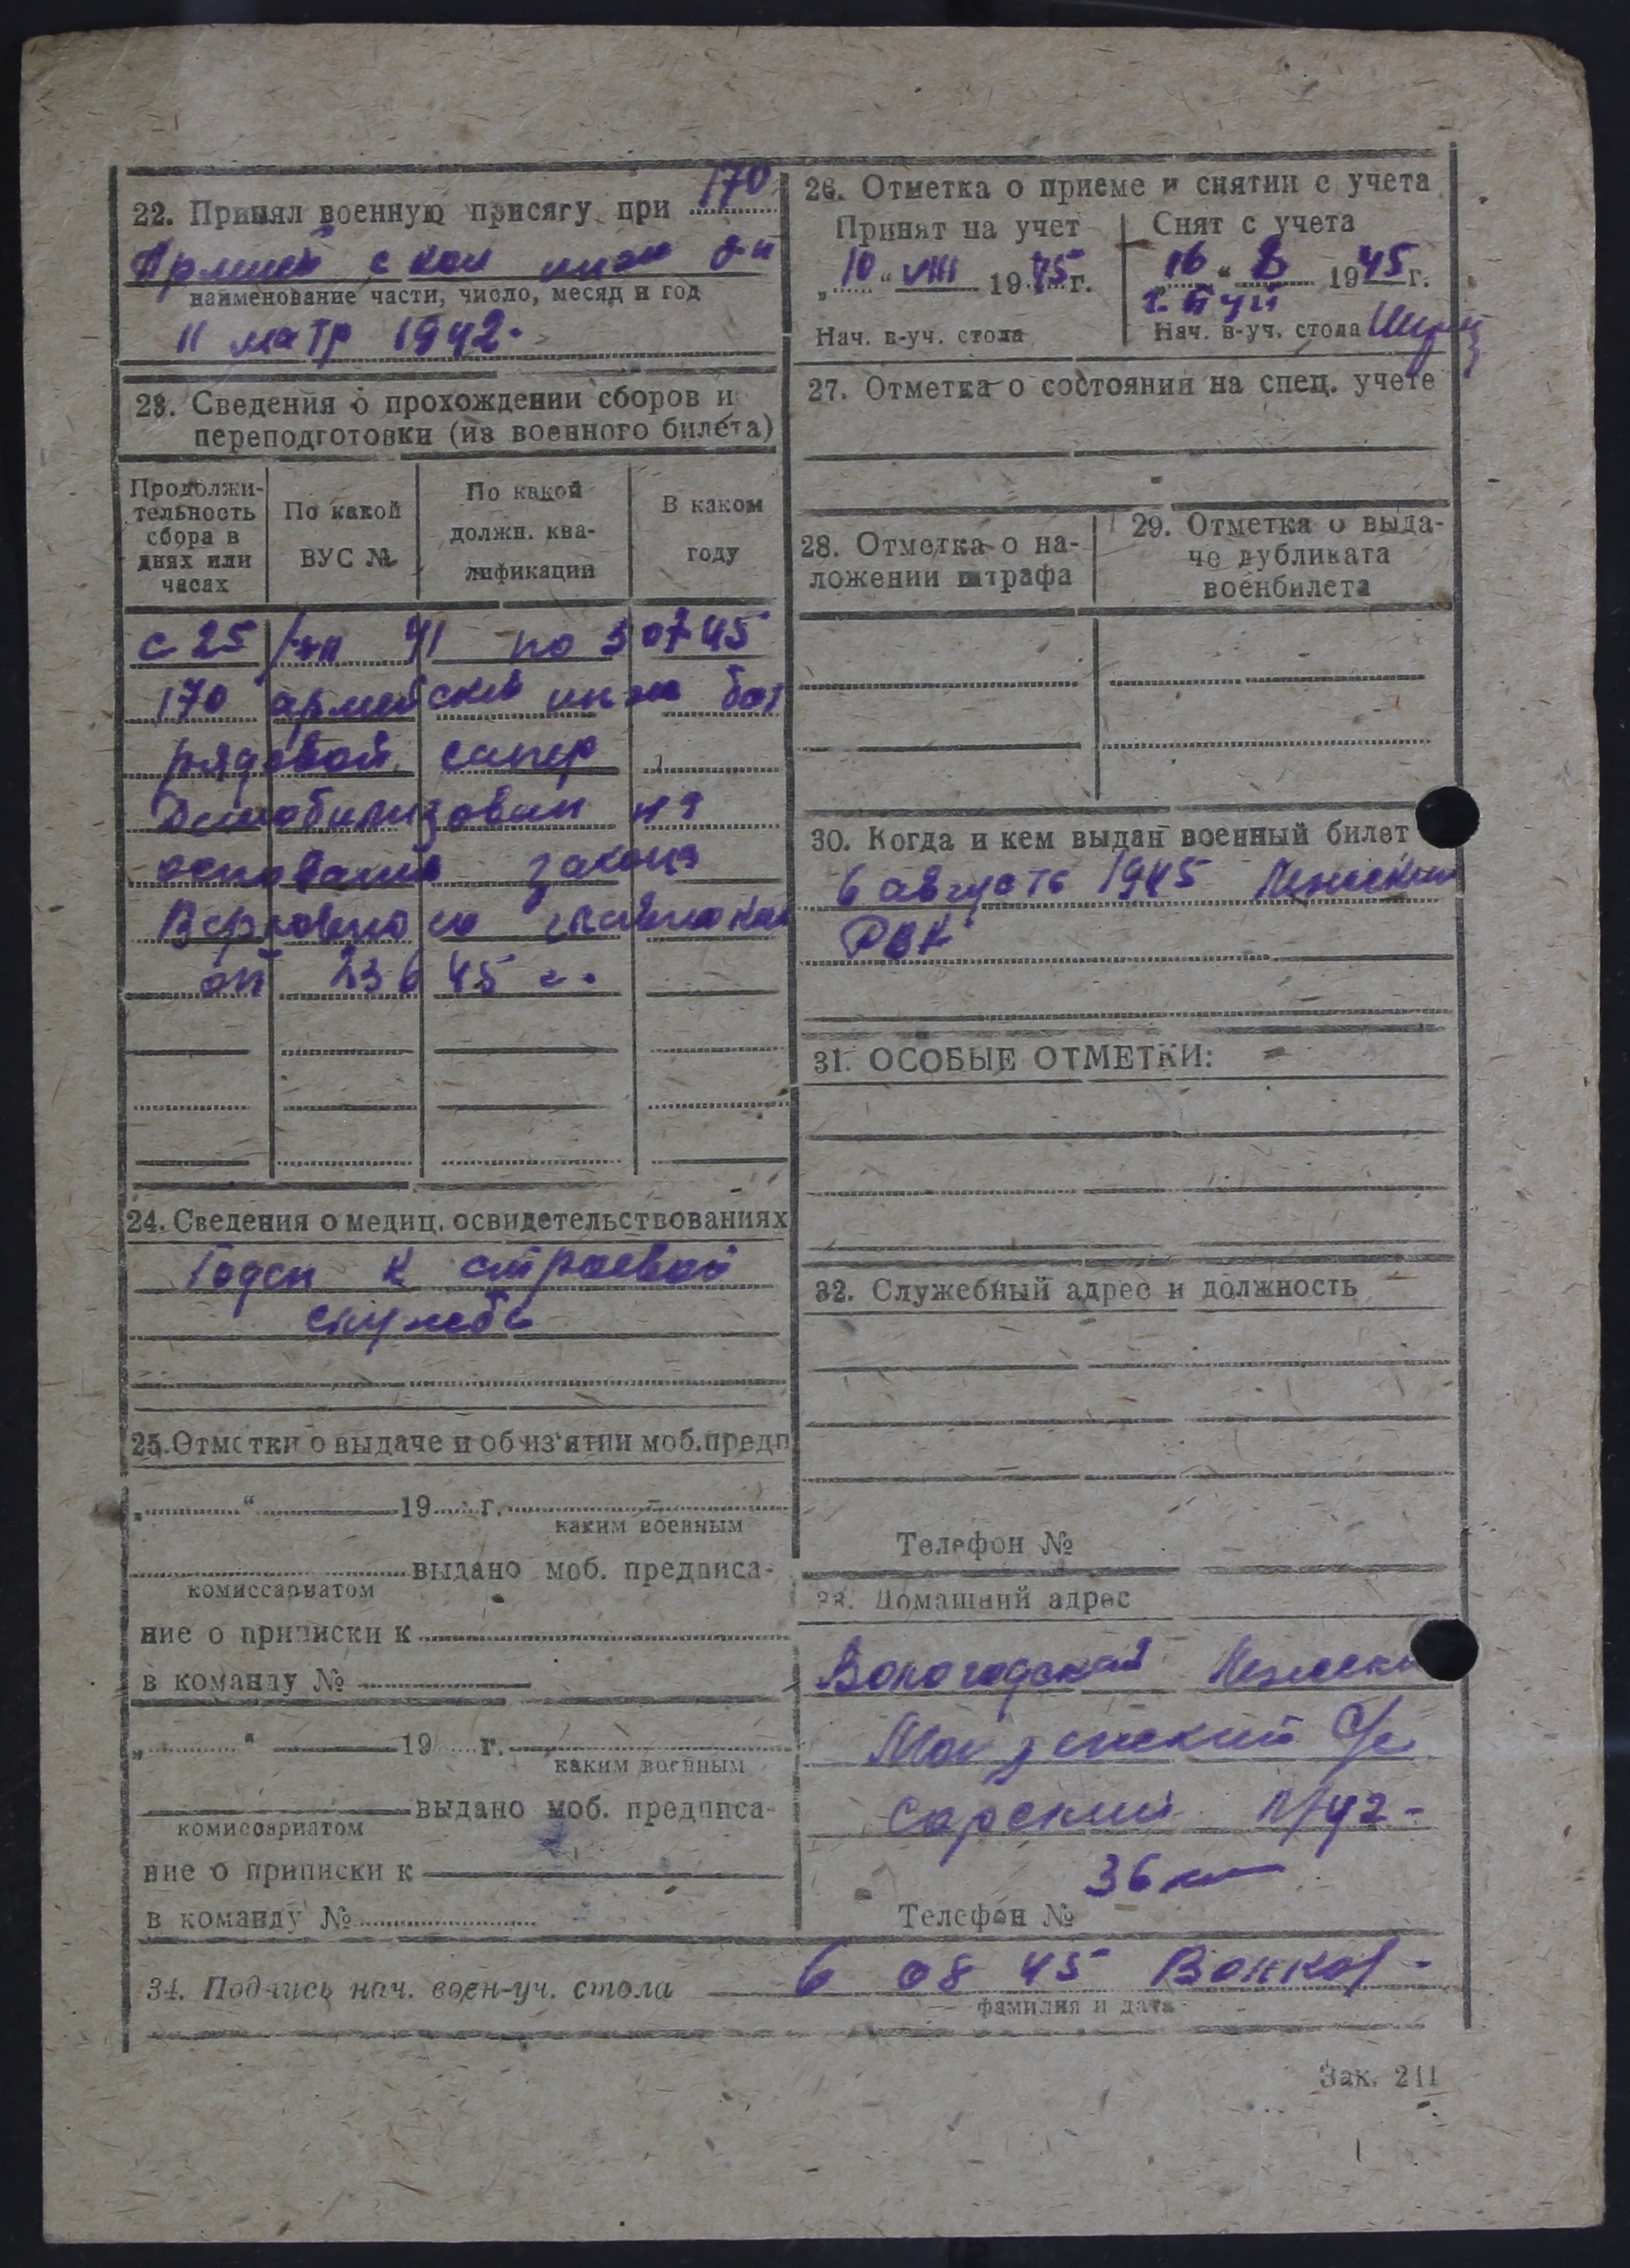 22. Принял военную присягу при 170
Армейской инж б-н
наименование части, число, месяц и год
11 матр 1942.
23. Сведения о прохождении сборов и
переподготовки (из военного билета)
Продолжи-
тельность
сбора в
днях или
часах
По какой
ВУС №
По какой
должн. ква-
лификации
В каком
году
с 25 41 по 3 07 45
170 армейский инж бат
рядовой сапер
Демобилизован на
основании закона
Верховного
от 23 6 45 г.
24. Сведения о медиц. освидетельствованиях
Годен к строевой
службе
25. Отметки о выдаче и об из'ятии моб.предп
„ “ 19 г.
каким военным
выдано моб. предписа-
комиссариатом
ние о приписки к
в команду №
„ “ 19 г.
каким военным
выдано моб. предписа-
комиссариатом
ние о приписки к
в команду №
26. Отметка о приеме и снятии с учета
Принят на учет
„10“ VIII 1945 г.
Нач. в-уч. стола
Снят с учета
„16“ 1945 г.
Нач. в-уч. стола
27. Отметка о состоянии на спец. учете
28. Отметка о на-
ложении штрафа
29. Отметка о выда-
че дубликата
военбилета
30. Когда и кем выдан военный билет
6 августа 1945
РВК
31. ОСОБЫЕ ОТМЕТКИ:
32. Служебный адрес и должность
Телефон №
33. Домашний адрес
Вологодской
с/с
36 км
Телефон №
34. Подпись нач. воен-уч. стола 6 08 45
фамилия и дата
Зак. 211